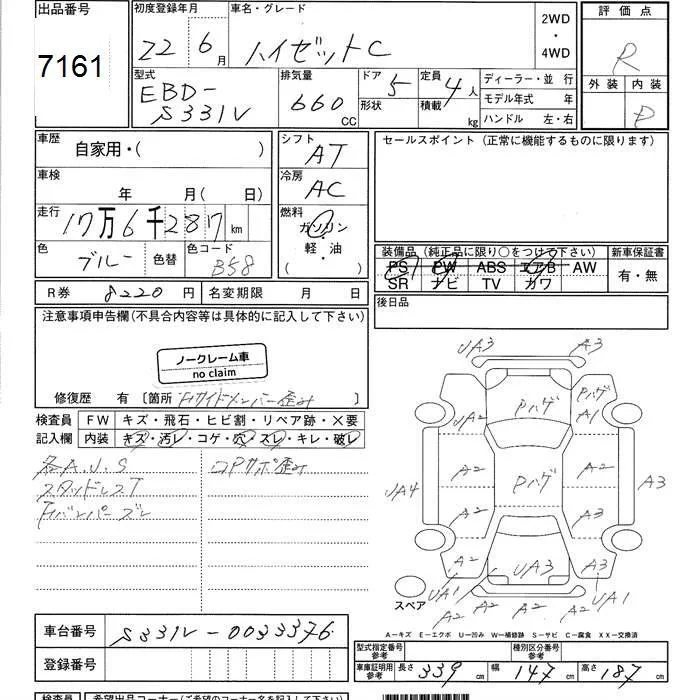 出品番号
7161
初度登録年月
22年6月
車名・グレード
ハイゼットC
2WD
・
4WD
評価点
R
外装 内装
D
型式
EBD-
S331V
排気量
660
CC
ドア 5
形状
定員 4人
積載 kg
ディーラー・並 行
モデル年式 年
ハンドル 左・右
車歴
自家用・( )
車検
年 月( 日)
走行
17万6千287km
色
ブルー
色替
色コード
B58
シフト
AT
冷房
AC
燃料
ガソリン
・
軽・油
( )
セールスポイント(正常に機能するものに限ります)
装備品(純正品に限り○をつけて下さい)
PS PW ABS エアB AW
SR ナビ TV カワ
新車保証書
有・無
R券 8220円 名変期限 月 日
後日品
注意事項申告欄(不具合内容等は具体的に記入して下さい)
ノークレーム車
no claim
修復歴 有 [箇所 Frサイドメンバー歪み ]
検査員
記入欄
FW キズ・飛石・ヒビ割・リペア跡・X要
内装 キズ・汚レ・コゲ・穴・スレ・キレ・破レ
各A.U.S
スタッドレスT
Frバンパーズレ
コアサポ歪み
UA3 A3
UA2 Pハゲ Pハゲ A1
UA4 A2 Pハゲ A2 A3
A2 A3
A2 UA3 A3
UA1 A2 A2 A2 UA1
スペア
A-キズ E-エクボ U-凹み W-補修跡 S-サビ C-腐食 XX-交換済
車台番号 S331V-0033376
登録番号
型式指定番号
参考
種別区分番号
参考
車庫証明用
参考
長さ 339cm 幅 147cm 高さ 187cm
検査員 希望出品コーナー(ご希望のコーナー名を記入下さい)